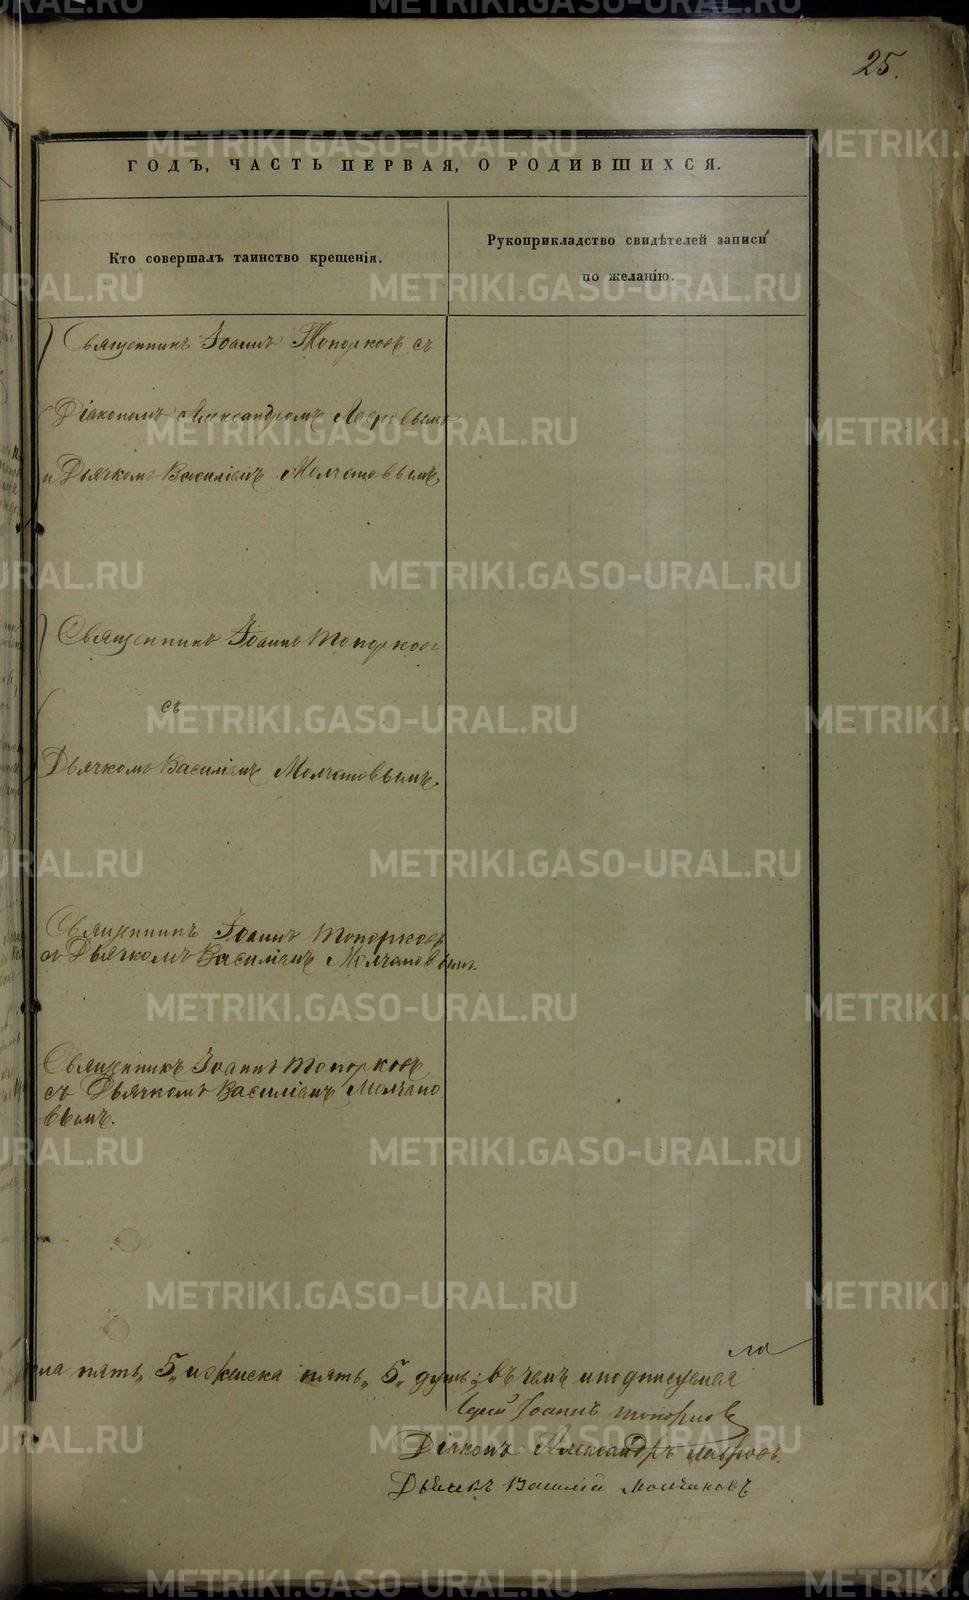 25.
ГОДЪ, ЧАСТЬ ПЕРВАЯ, О РОДИВШИХСЯ.
Кто совершалъ таинство крещенія.
Рукоприкладство свидѣтелей записи
по желанію.
Священникъ Іоаннъ Топорковъ съ
Діакономъ Александромъ Лавровымъ
и Дьячкомъ Василіемъ Молчановымъ,
Священникъ Іоаннъ Топорковъ
съ
Дьячкомъ Василіемъ Молчановымъ.
Священникъ Іоаннъ Топорковъ
съ Дьячкомъ Василіемъ Молчановымъ.
Священникъ Іоаннъ Топорковъ
съ Дьячкомъ Василіемъ Молчано
вымъ.
ла пять, 5, и женска пять, 5, душъ, въ чемъ и подписуемся
Іоаннъ Топорковъ
Діаконъ Александръ Лавровъ.
Дьячекъ Василій Молчановъ
METRIKI.GASO-URAL.RU